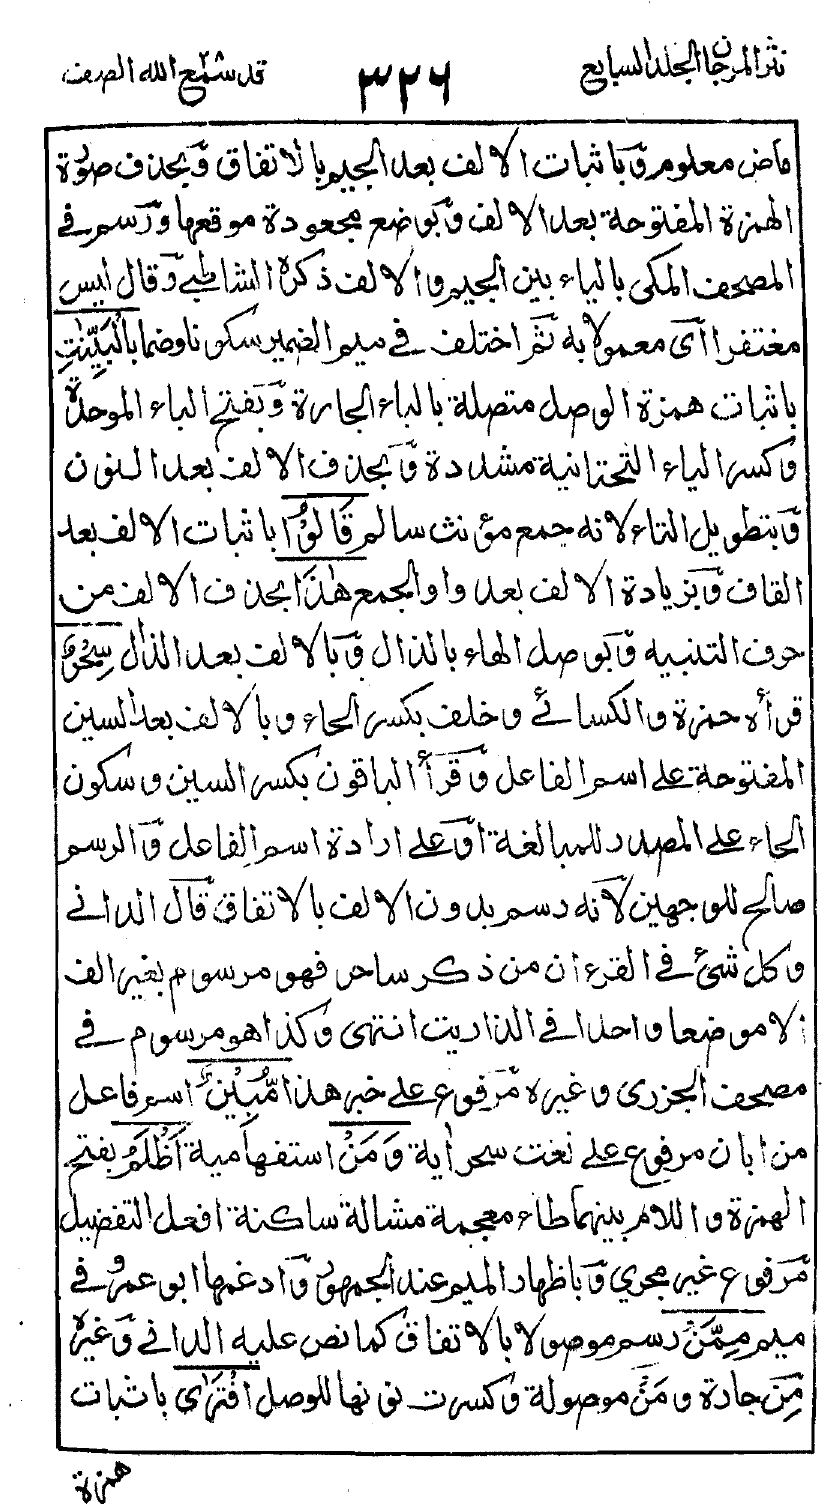 نثر المرجان الجلد السابع
٣٢٦
قد سمع الله الصف
ماض معلوم وباثبات الالف بعد الجيم بالاتفاق وبحذف صورة
الهمزة المفتوحة بعد الالف وبوضع مجعودة موقعها ورسم في
المصحف المكى بالياء بين الجيم والالف ذكره الشاطبي وقال ليس
مغتفرا اى معمولا به ثم اختلف في ميم الضمير سكونا وضما بِالْبَيِّنٰتِ
باثبات همزة الوصل متصلة بالباء الجارة وبفتح الباء الموحدة
وكسر الياء التحتانية مشددة وبحذف الالف بعد النون
وبتطويل التاء لانه جمع مؤنث سالم قَالُوْا باثبات الالف بعد
القاف وبزيادة الالف بعد واو الجمع هٰذَا بحذف الالف من
حرف التنبيه وبوصل الهاء بالذال وبالالف بعد الذال سِحْرٌ
قرأه حمزة والكسائي وخلف بكسر الحاء وبالالف بعد السين
المفتوحة على اسم الفاعل وقرأ الباقون بكسر السين وسكون
الحاء على المصدر للمبالغة او على ارادة اسم الفاعل والرسم
صالح للوجهين لانه رسم بدون الالف بالاتفاق قال الداني
وكل شئ في القرءان من ذكر ساحر فهو مرسوم بغير الف
الا موضعا واحدا في الذاريت انتهى وكذا هو مرسوم في
مصحف الجزرى وغيره مرفوع على خبر هذا مُّبِيْنٌ اسم فاعل
من ابان مرفوع على نعت سحر اٰية وَمَنْ استفهامية اَظْلَمُ بفتح
الهمزة واللام بينهما ظاء معجمة مشالة ساكنة افعل التفضيل
مرفوع غير مجرى وباظهار الميم عند الجمهور وادغمها ابو عمرو في
ميم مِمَّنْ رسم موصولا بالاتفاق كما نص عليه الداني وغيره
من جارة ومن موصولة وكسرت نونها للوصل افْتَرٰى باثبات
همزة